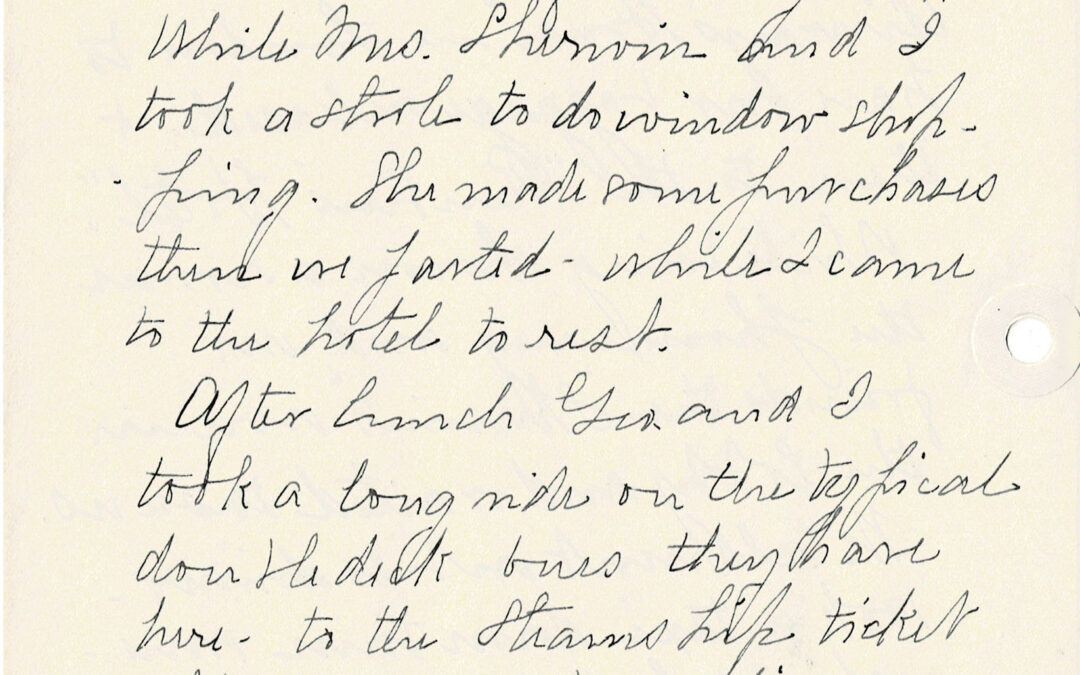 While Mrs. Sherwin and I
took a strole to do window shop-
ping. She made some purchases
then we parted - while I came
to the hotel to rest.
After lunch Geo. and I
took a long ride on the typical
double deck buses they have
here - to the Steamship ticket